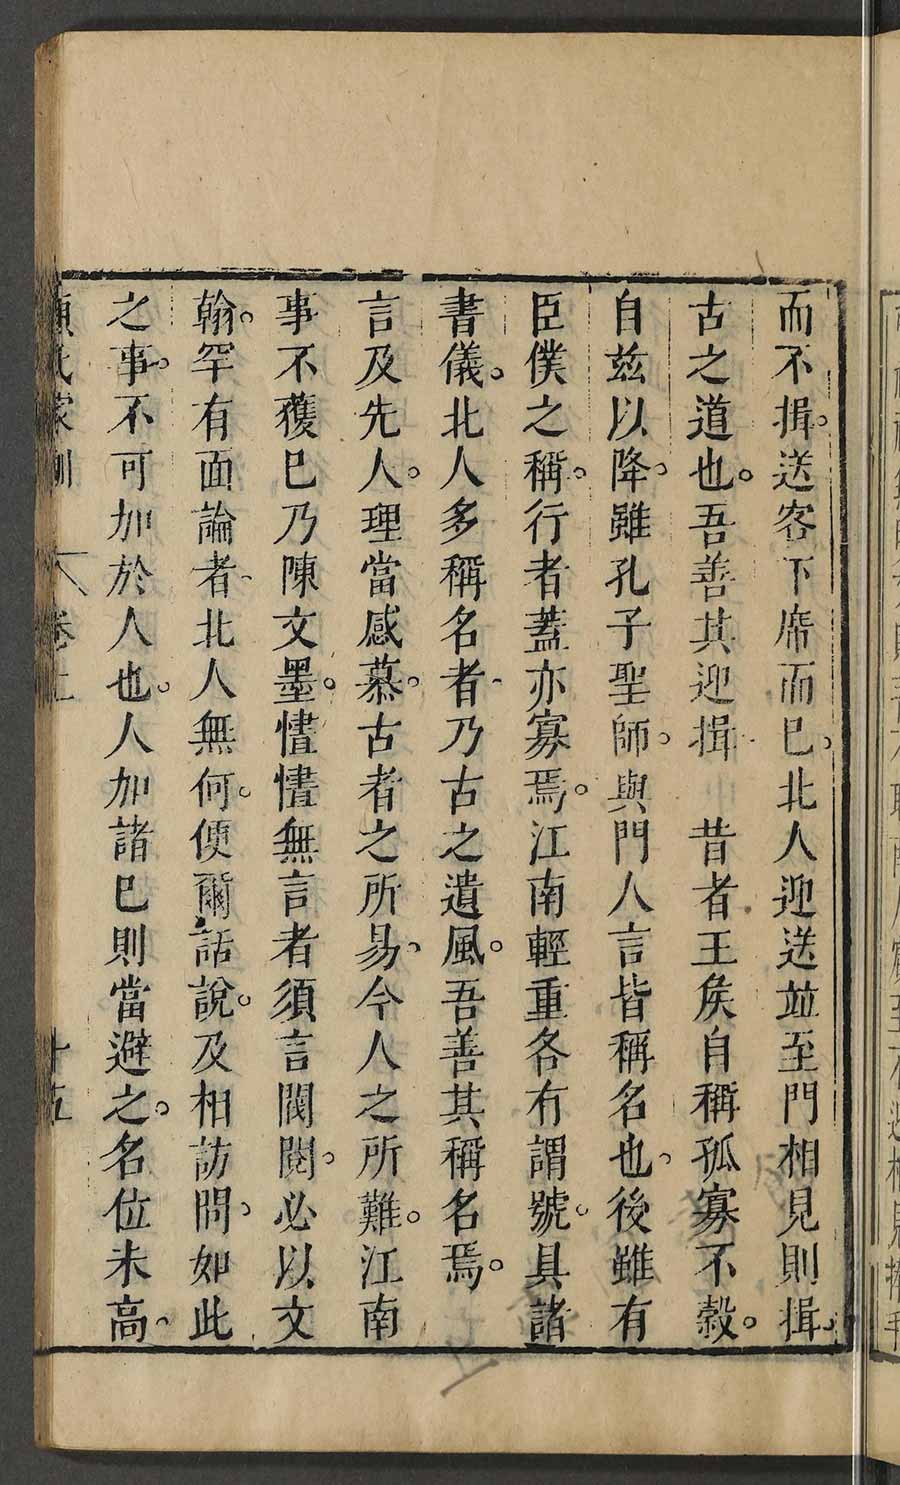 而不揖。送客下席而已。北人迎送並至門相見則揖。
古之道也。吾善其迎揖　昔者王矦自稱孤寡不穀。
自茲以降。雖孔子聖師。與門人言皆稱名也。後雖有
臣僕之稱。行者蓋亦寡焉。江南輕重各有謂號。具諸
書儀。北人多稱名者乃古之遺風。吾善其稱名焉。
言及先人。理當感慕。古者之所易、今人之所難。江南
事不獲已乃陳文墨。懵懵無言者須言閥閱。必以文
翰。罕有面論者、北人無何。便爾話說。及相訪問。如此
之事。不可加於人也。人加諸已則當避之。名位未高。
顏氏家訓　卷上　十五